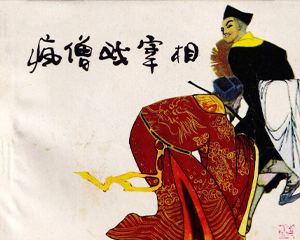 疯僧戏宰相